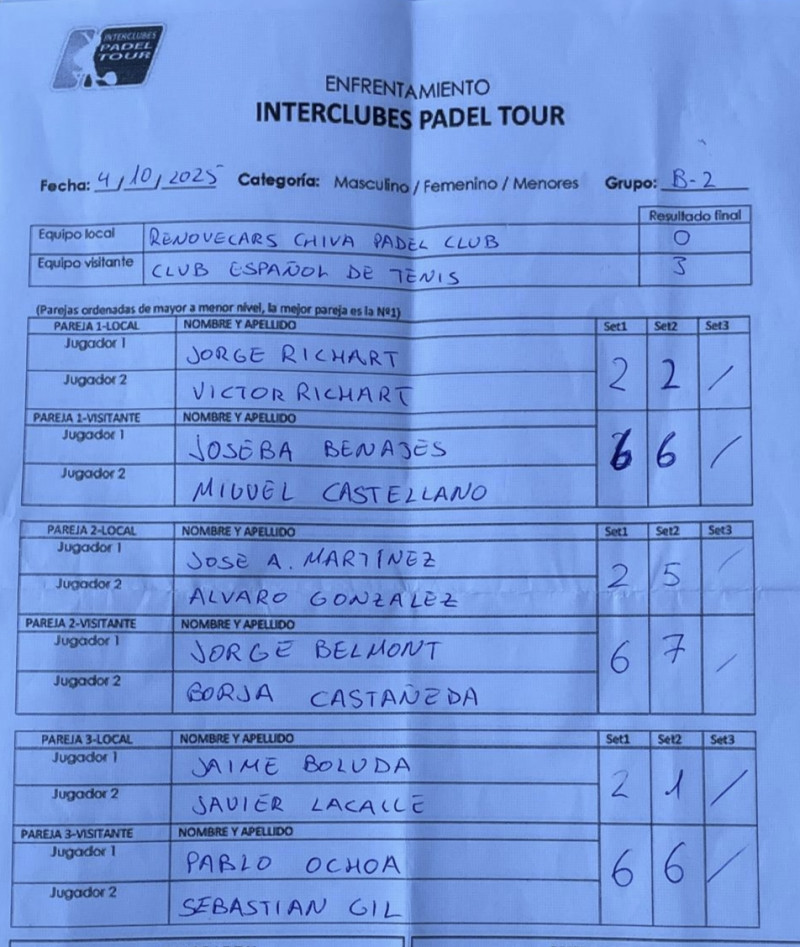 INTERCLUBES
PADEL
TOUR
ENFRENTAMIENTO
INTERCLUBES PADEL TOUR
Fecha: 4/10/2025 Categoría: Masculino / Femenino / Menores Grupo: B-2
Resultado final
Equipo local RENOVECARS CHIVA PADEL CLUB 0
Equipo visitante CLUB ESPAÑOL DE TENIS 3
(Parejas ordenadas de mayor a menor nivel, la mejor pareja es la Nº1)
PAREJA 1-LOCAL NOMBRE Y APELLIDO Set1 Set2 Set3
Jugador 1 JORGE RICHART
2 2 /
Jugador 2 VICTOR RICHART
PAREJA 1-VISITANTE NOMBRE Y APELLIDO
Jugador 1 JOSEBA BENAJES
6 6 /
Jugador 2 MIGUEL CASTELLANO
PAREJA 2-LOCAL NOMBRE Y APELLIDO Set1 Set2 Set3
Jugador 1 JOSE A. MARTÍNEZ
2 5 /
Jugador 2 ALVARO GONZALEZ
PAREJA 2-VISITANTE NOMBRE Y APELLIDO
Jugador 1 JORGE BELMONT
6 7 /
Jugador 2 BORJA CASTAÑEDA
PAREJA 3-LOCAL NOMBRE Y APELLIDO Set1 Set2 Set3
Jugador 1 JAIME BOLUDA
2 1 /
Jugador 2 JAVIER LACALLE
PAREJA 3-VISITANTE NOMBRE Y APELLIDO
Jugador 1 PABLO OCHOA
6 6 /
Jugador 2 SEBASTIAN GIL